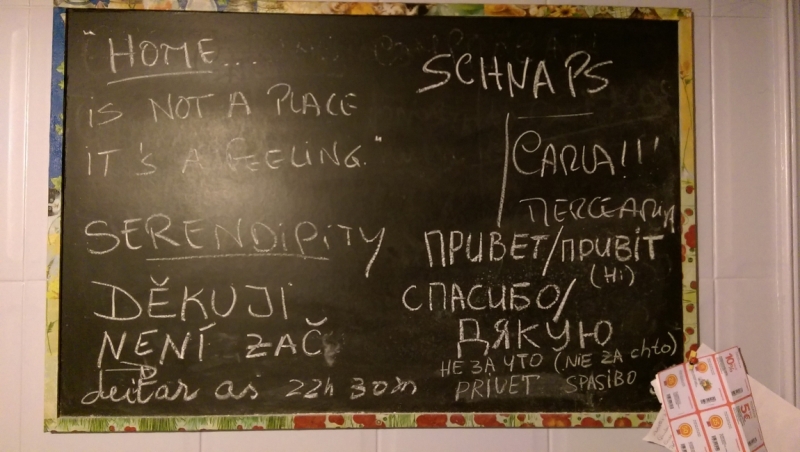 "HOME...
IS NOT A PLACE
IT'S A FEELING."
SERENDIPITY
DĚKUJI
NENÍ ZAČ
deitar as 22h 30m
SCHNAPS
CARLA!!!
ПРИВЕТ/ПРИВІТ
(Hi)
СПАСИБО/
ДЯКУЮ
НЕ ЗА ЧТО (NIE ZA chto)
PRIVET SPASIBO
10%
5€